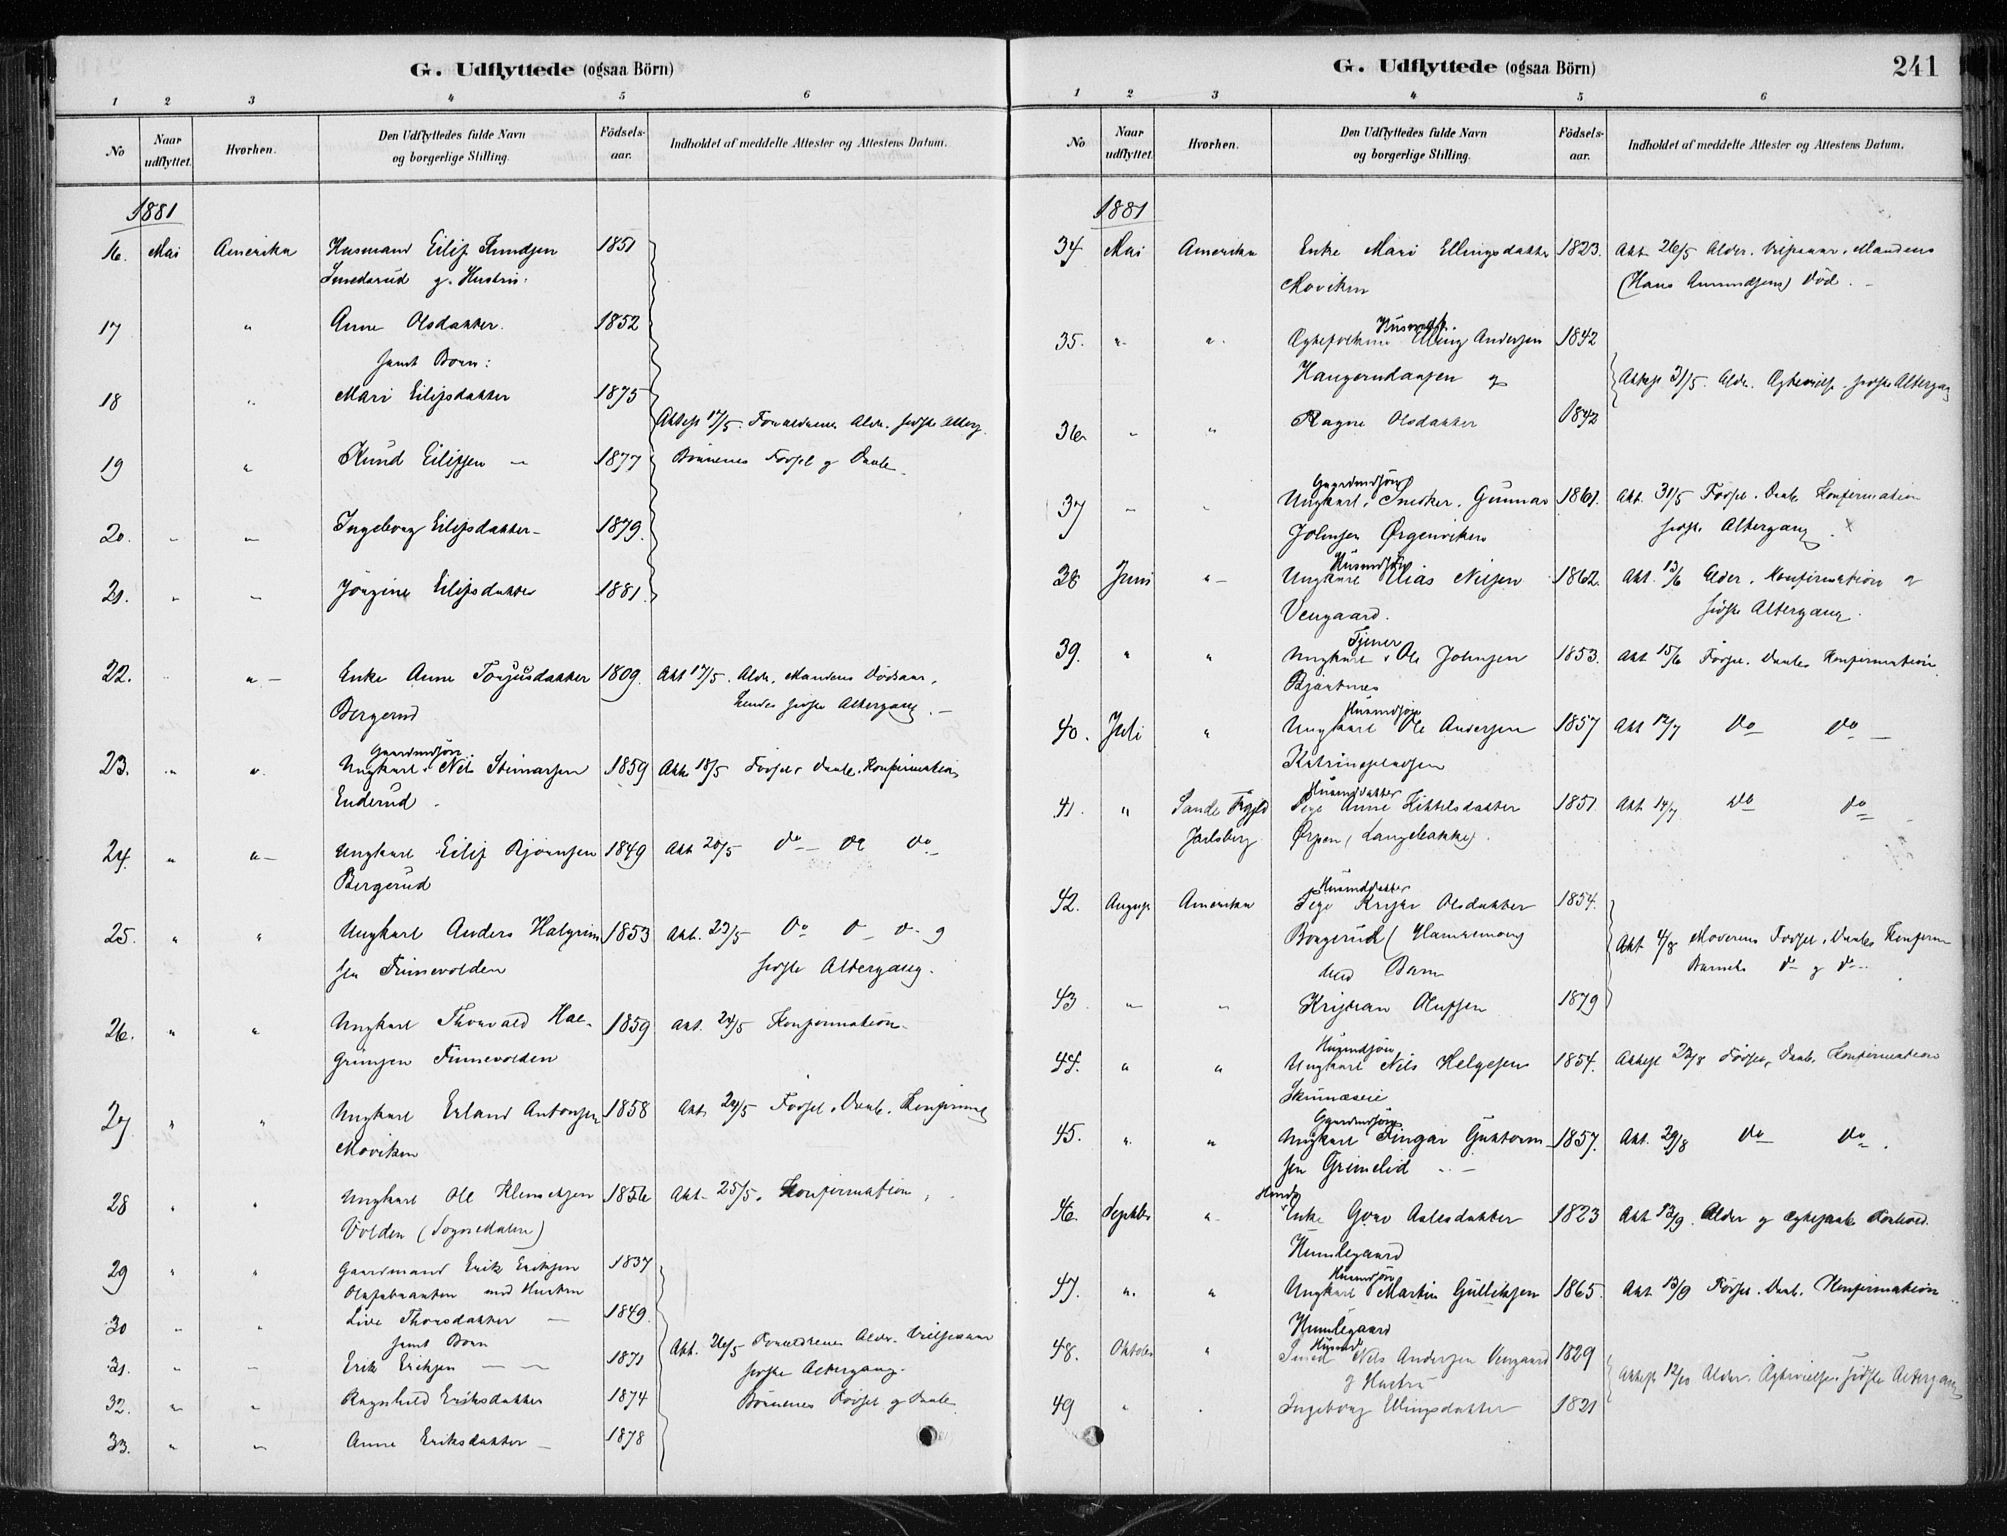 G. Udflyttede (ogsaa Börn)
1 2 3 4 5 6
No Naar udflyttet. Hvorhen. Den Udflyttedes fulde Navn og borgerlige Stilling. Födsels-aar. Indholdet af meddelte Attester og Attestens Datum.
1881
16. Mai Amerika Husmand Eilif Knudsen 1851
Smedsrud g. Hustru:
17 " Anne Olsdatter. 1852
samt Börn:
18 " Mari Eilifsdatter 1875
Attest 17/5. Forældrenes Alder. sidste Alterg.
19 " Knud Eilifsen - 1877 Börnenes Fødsel og Daab.
20. " " Ingeborg Eilifsdatter - 1879.
21. " " Jörgine Eilifsdatter 1881.
22. " " Enke Anne Torjusdatter 1809. Att 17/5. Alder. Mandens Dødsaar,
Bergerud hendes sidste Altergang. -
Gaardmdsøn
23. " " Ungkarl. Nils Steinarsen 1859 Att. 18/5 Fødsel, Daab. Konfirmation
Enderud.
24. " " Ungkarl Eilif Bjørnsen 1849 Att. 20/5 do do do
Bergerud
25. " " Ungkarl Anders Halgrim 1853 Att. 23/5 do do do og
sen Finnevolden sidste Altergang.
26. " " Ungkarl Thorvald Hal- 1859 Att. 24/5 Konfirmation.
grimsen Finnevolden
27 " " Ungkarl Erland Antonsen 1858 Att. 24/5 Fødsel. Daab. Konfirmat
Moviken
28 " " Ungkarl Ole Klemetsen 1856 Att. 25/5. Konfirmation.
Volden (Sognedalen)
29 " " Gaardmand Erik Eriksen 1837
Olafsbraaten med Hustru
30 " " Live Thorsdatter - 1849.
samt Børn Att. 26/5 Forældrenes Alder. Vielsesaar
31. " " Erik Eriksen - - 1871 sidste Altergang.
32. " " Ragnhild Eriksdatter 1874 Börnenes Fødsel og Daab
33. " " Anne Eriksdatter - 1878
G. Udflyttede (ogsaa Börn) 241
1 2 3 4 5 6
No Naar udflyttet. Hvorhen. Den Udflyttedes fulde Navn og borgerlige Stilling. Födsels-aar. Indholdet af meddelte Attester og Attestens Datum.
1881
34 Mai Amerika Enke Mari Ellingsdatter 1823. Att 26/5 Alder. Mandens
Moviken (Hans Amundsens) Död. -
Husmdsf.
35. " " Ægtefolkene Elling Andersen 1842
Haugerudaasen og Attest 31/5. Alder. Ægteviels. sidste Altergang
36 " " Ragne Olsdatter 1842
Gaardmdsøn
37 " " Ungkarl. Snedker. Gunnar 1861. Att. 31/5 Fødsel. Daab. Konfirmation
Johnsen Ørgenviken sidste Altergang.
Husmdsøn
38 Juni " Ungkarl Elias Nilsen 1862. Att. 13/6 Alder. Konfirmation og
Vengaard. sidste Altergang.
Tjener
39. " " Ungkarl. Ole Johnsen 1853. Att 15/6 Fødsel. Daab. Konfirmation
Bjørtnes
Husmdsøn
40. Juli " Ungkarl Ole Andersen 1857 Att 12/7 do do
Katrinepladsen
Husmdsdatter
41. " Sande Prgjeld Pige Anne Kittelsdatter 1851. Att. 14/7 do do
Jarlsberg Ørpen (Langebakke).
Husmdsdatter
42. August Amerika Pige Kristi Olsdatter 1854.
Bongerud (
med Barn Att 4/8 Moderens Fødsel, Daab. Konfirm
Barnets do og do
43 " " Kristian Olufsen 1879
Husmdsøn
44. " " Ungkarl Nils Helgesen 1854. Attest 23/8 Fødsel, Daab. Konfirmation
Skinnæseie
Gaardmdsøn
45. " " Ungkarl Fingar Guttorm- 1857. Att. 29/8 do do.
sen Grimelid - -
46. Septbr " Enke Goro Aslesdatter 1823 Att 13/9. Alder og
Humlegaard
Husmdsøn
47. " " Ungkarl Martin Gulliksen 1865. Att 13/9 Fødsel. Daab. Konfirmation
Humlegaard
Husmd
48. Oktober " Smed Nils Andersen Vengaard 1829
og Hustru Attest 12/10 Alder. Ægtevielse. sidste Altergang
49 " " Ingeborg Ellingsdatter 1821